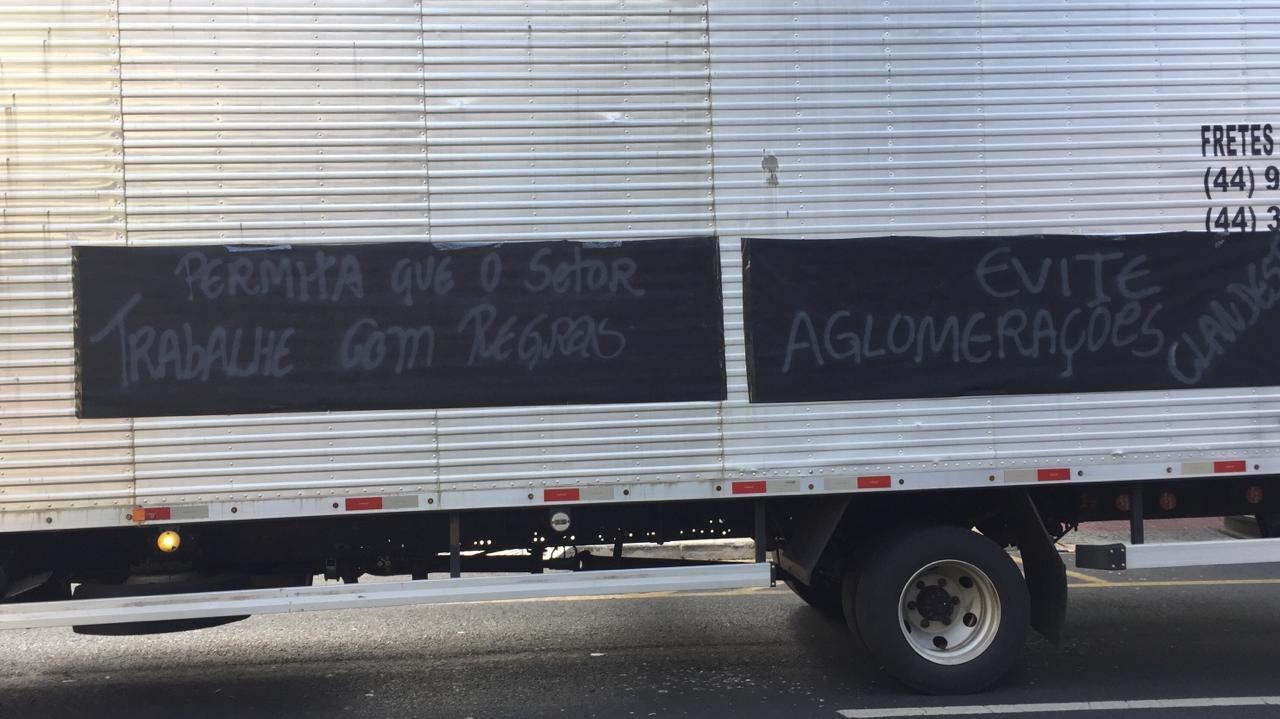 FRETES
(44) 9
(44) 3
PERMITA QUE O SETOR
TRABALHE COM REGRAS
EVITE
AGLOMERAÇÕES CLANDES